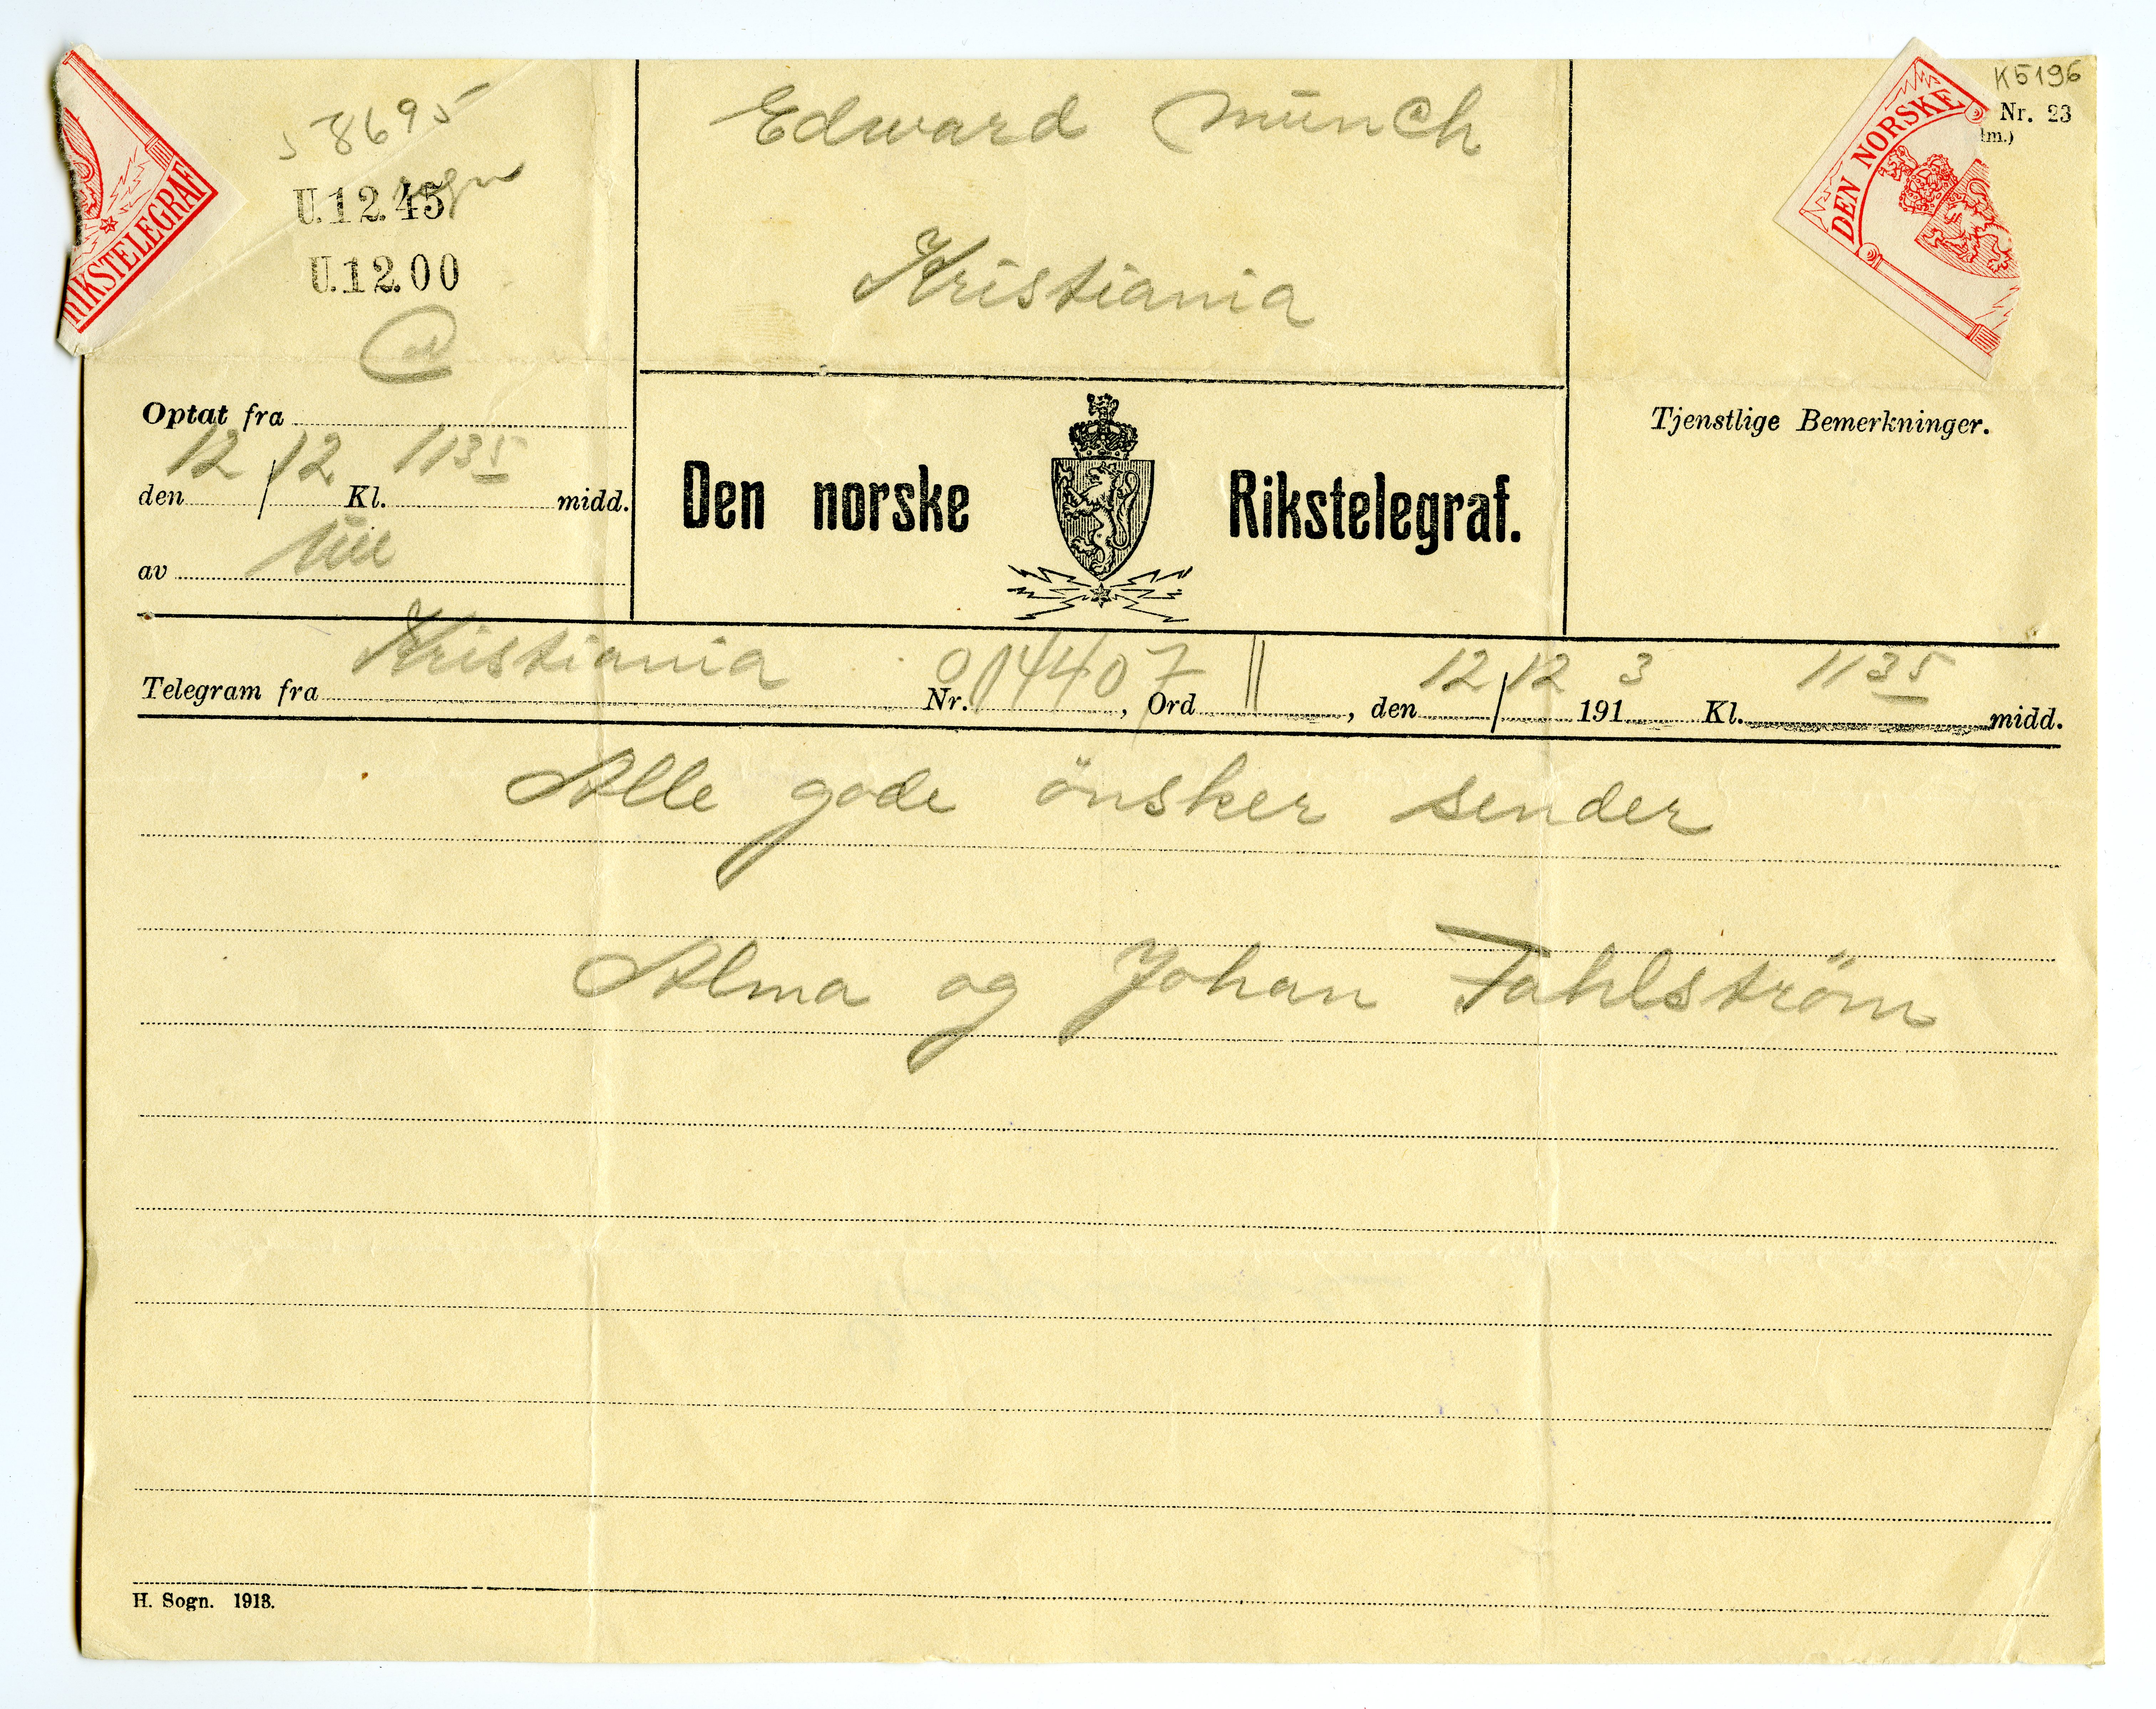 K5196
Nr. 23
lm.)
DEN NORSKE
RIKSTELEGRAF
58695
U.12.45
U.12.00
Edward Münch
Kristiania
Optat fra
den 12/12 Kl. 1135 midd.
av
Den norske Rikstelegraf.
Tjenstlige Bemerkninger.
Telegram fra Kristiania Nr. 014407, Ord ||, den 12/12 1913 Kl. 1135 midd.
Alle gode önsker sender
Alma og Johan Fahlström
H. Sogn. 1913.